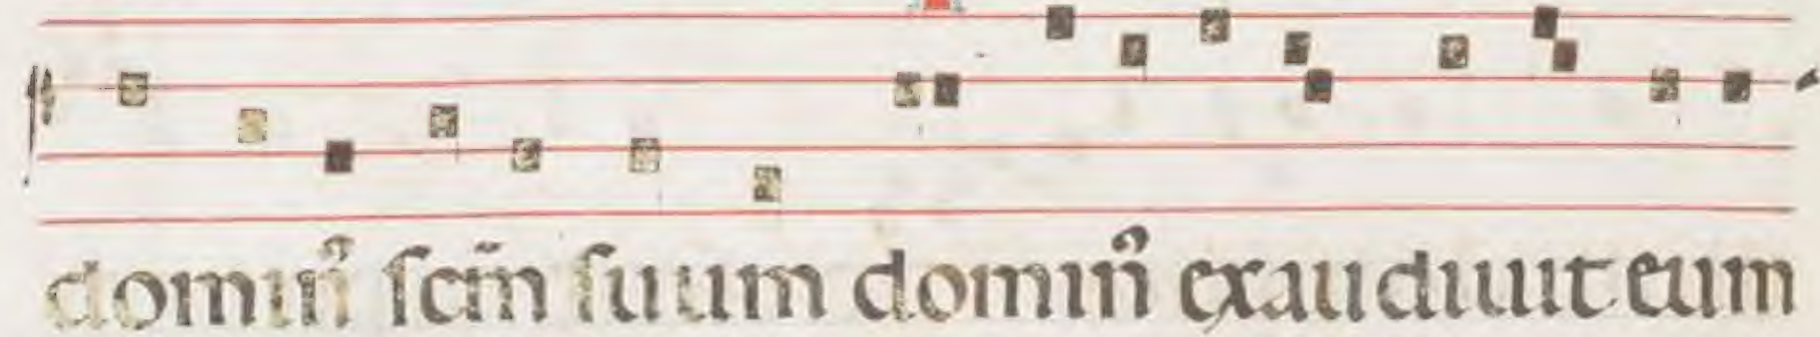 domin᷒ ſcm̄ ſuum domin᷒ exaudiuit eum